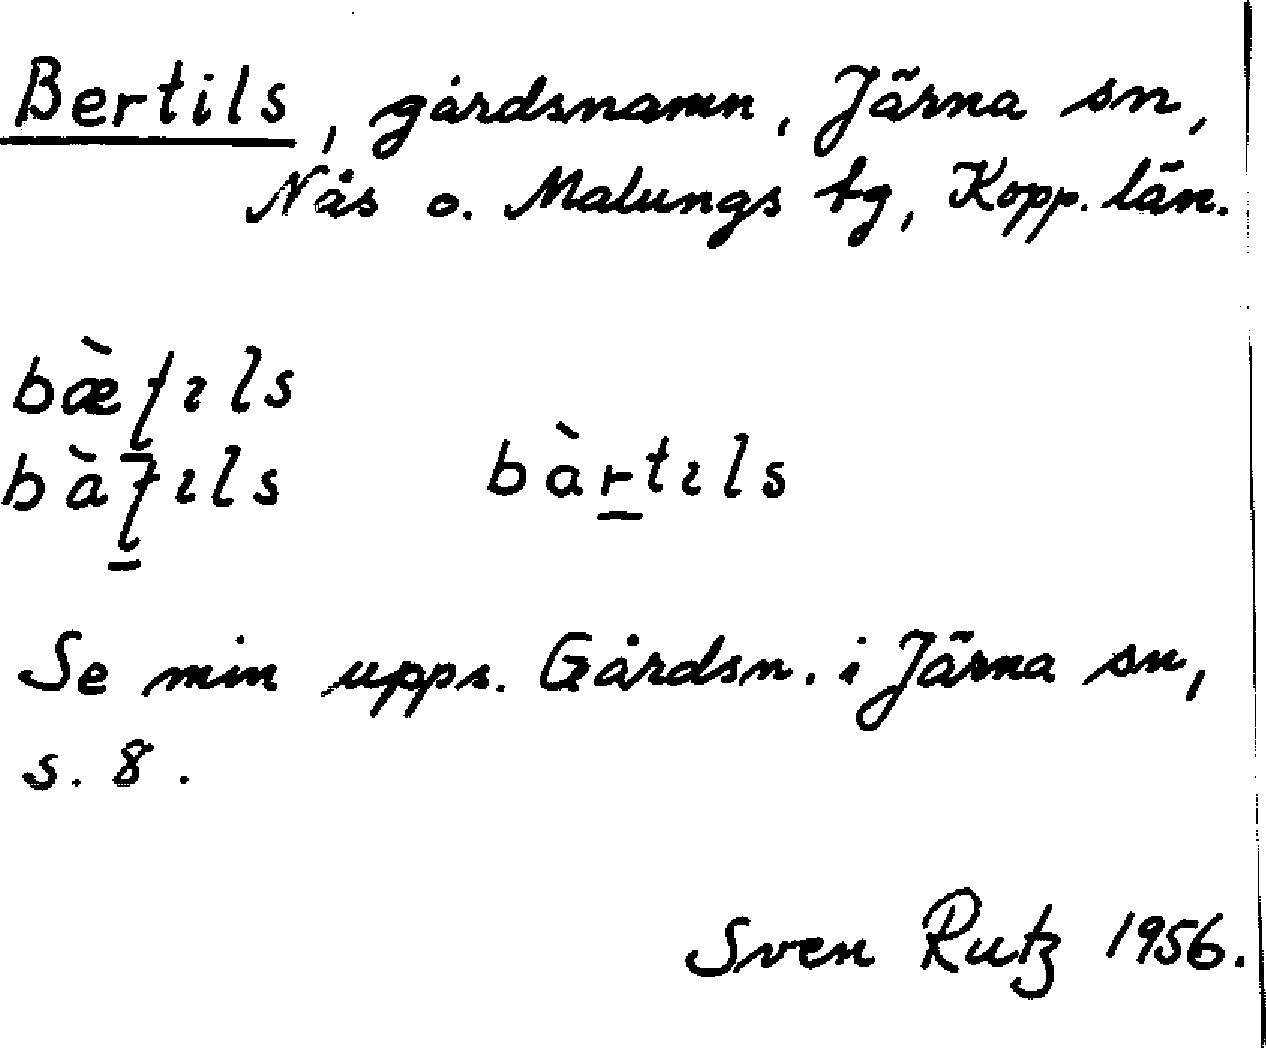 Bertils, gårdsnamn, Järna sn,
Nås o. Malungs tg, Kopp. län.
bæ̀ʈɪls
bàʈ̲ɪls bàr̲tɪls
Se min upps. Gårdsn. i Järna sn,
s. 8.
Sven Rutz 1956.